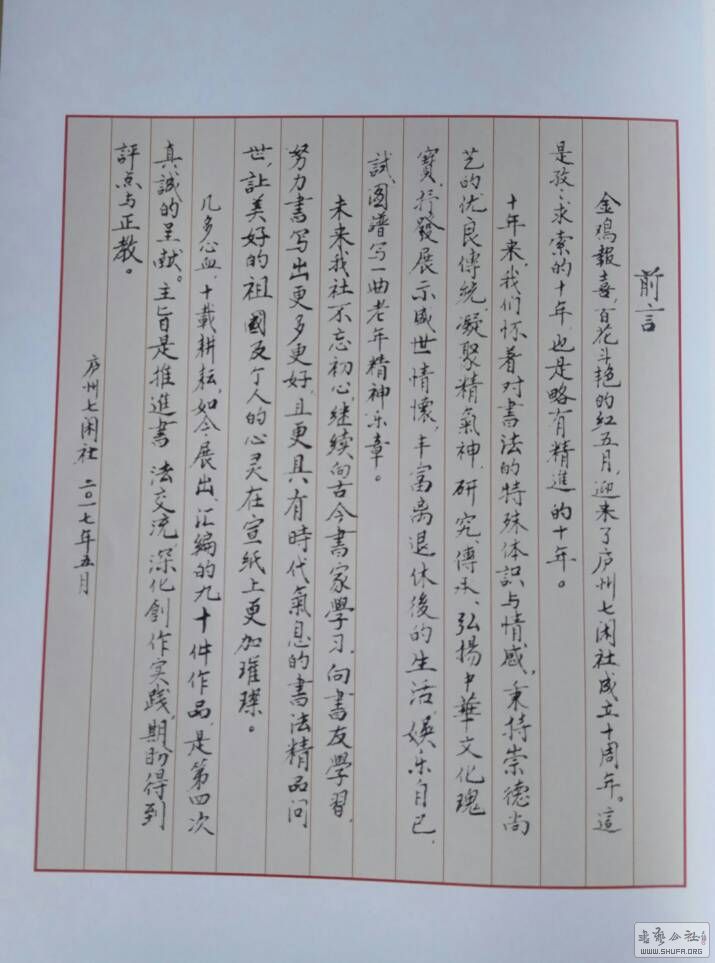 前言
金鸡報喜,百花斗艳的红五月,迎来了庐州七闲社成立十周年。這
是孜孜求索的十年,也是略有精進的十年。
十年来,我们怀着对書法的特殊体识与情感,秉持崇德尚
艺的优良傳統,凝聚精氣神,研究傳承、弘揚中華文化瑰
寶,抒發展示盛世情懷,丰富离退休後的生活,娱乐自己,
試圖譜写一曲老年精神乐章。
未来我社不忘初心,继续向古今書家學习,向書友學習,
努力書写出更多更好,且更具有時代氣息的書法精品问
世,让美好的祖國及个人的心灵在宣纸上更加璀璨。
几多心血,十載耕耘,如今展出、汇编的九十件作品,是第四次
真誠的呈献。主旨是推進書法交流,深化創作实践,期盼得到
評点与正教。
庐州七闲社 二〇一七年五月
書藝公社
WWW.SHUFA.ORG